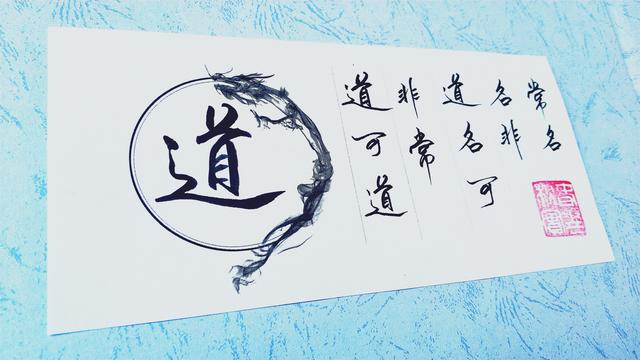 道
道可道
非常
道名可
名非
常名